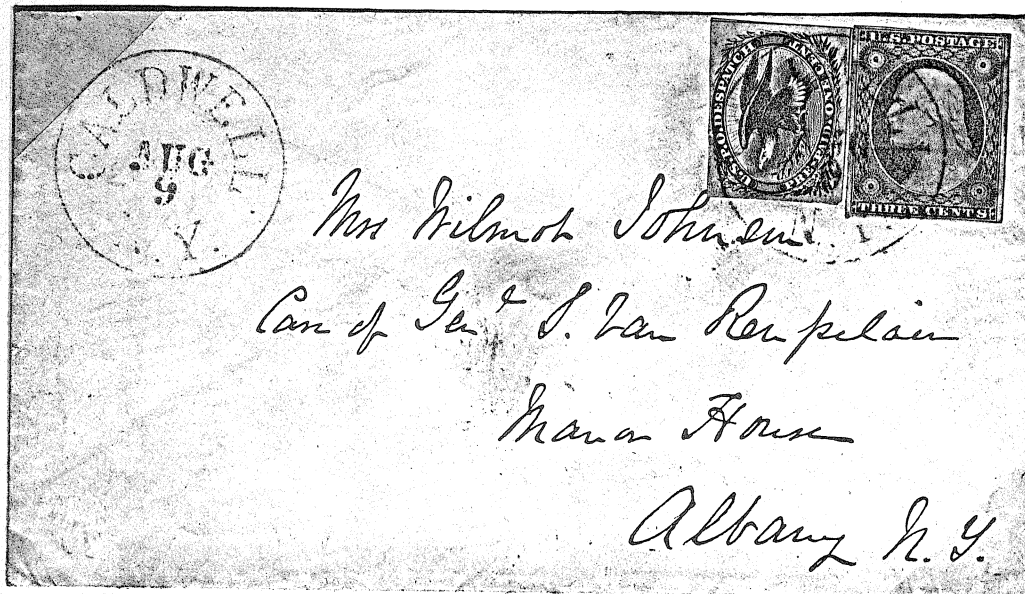 CALDWELL
AUG
9
. Y.
U.S.P.O. DESPATCH
PRE-PAID ONE CENT
U.S. POSTAGE
THREE CENTS
N. Y.
Mrs Wilmot Johnson
Care of Genl S. Van Rensselaer
Manor House
Albany N. Y.